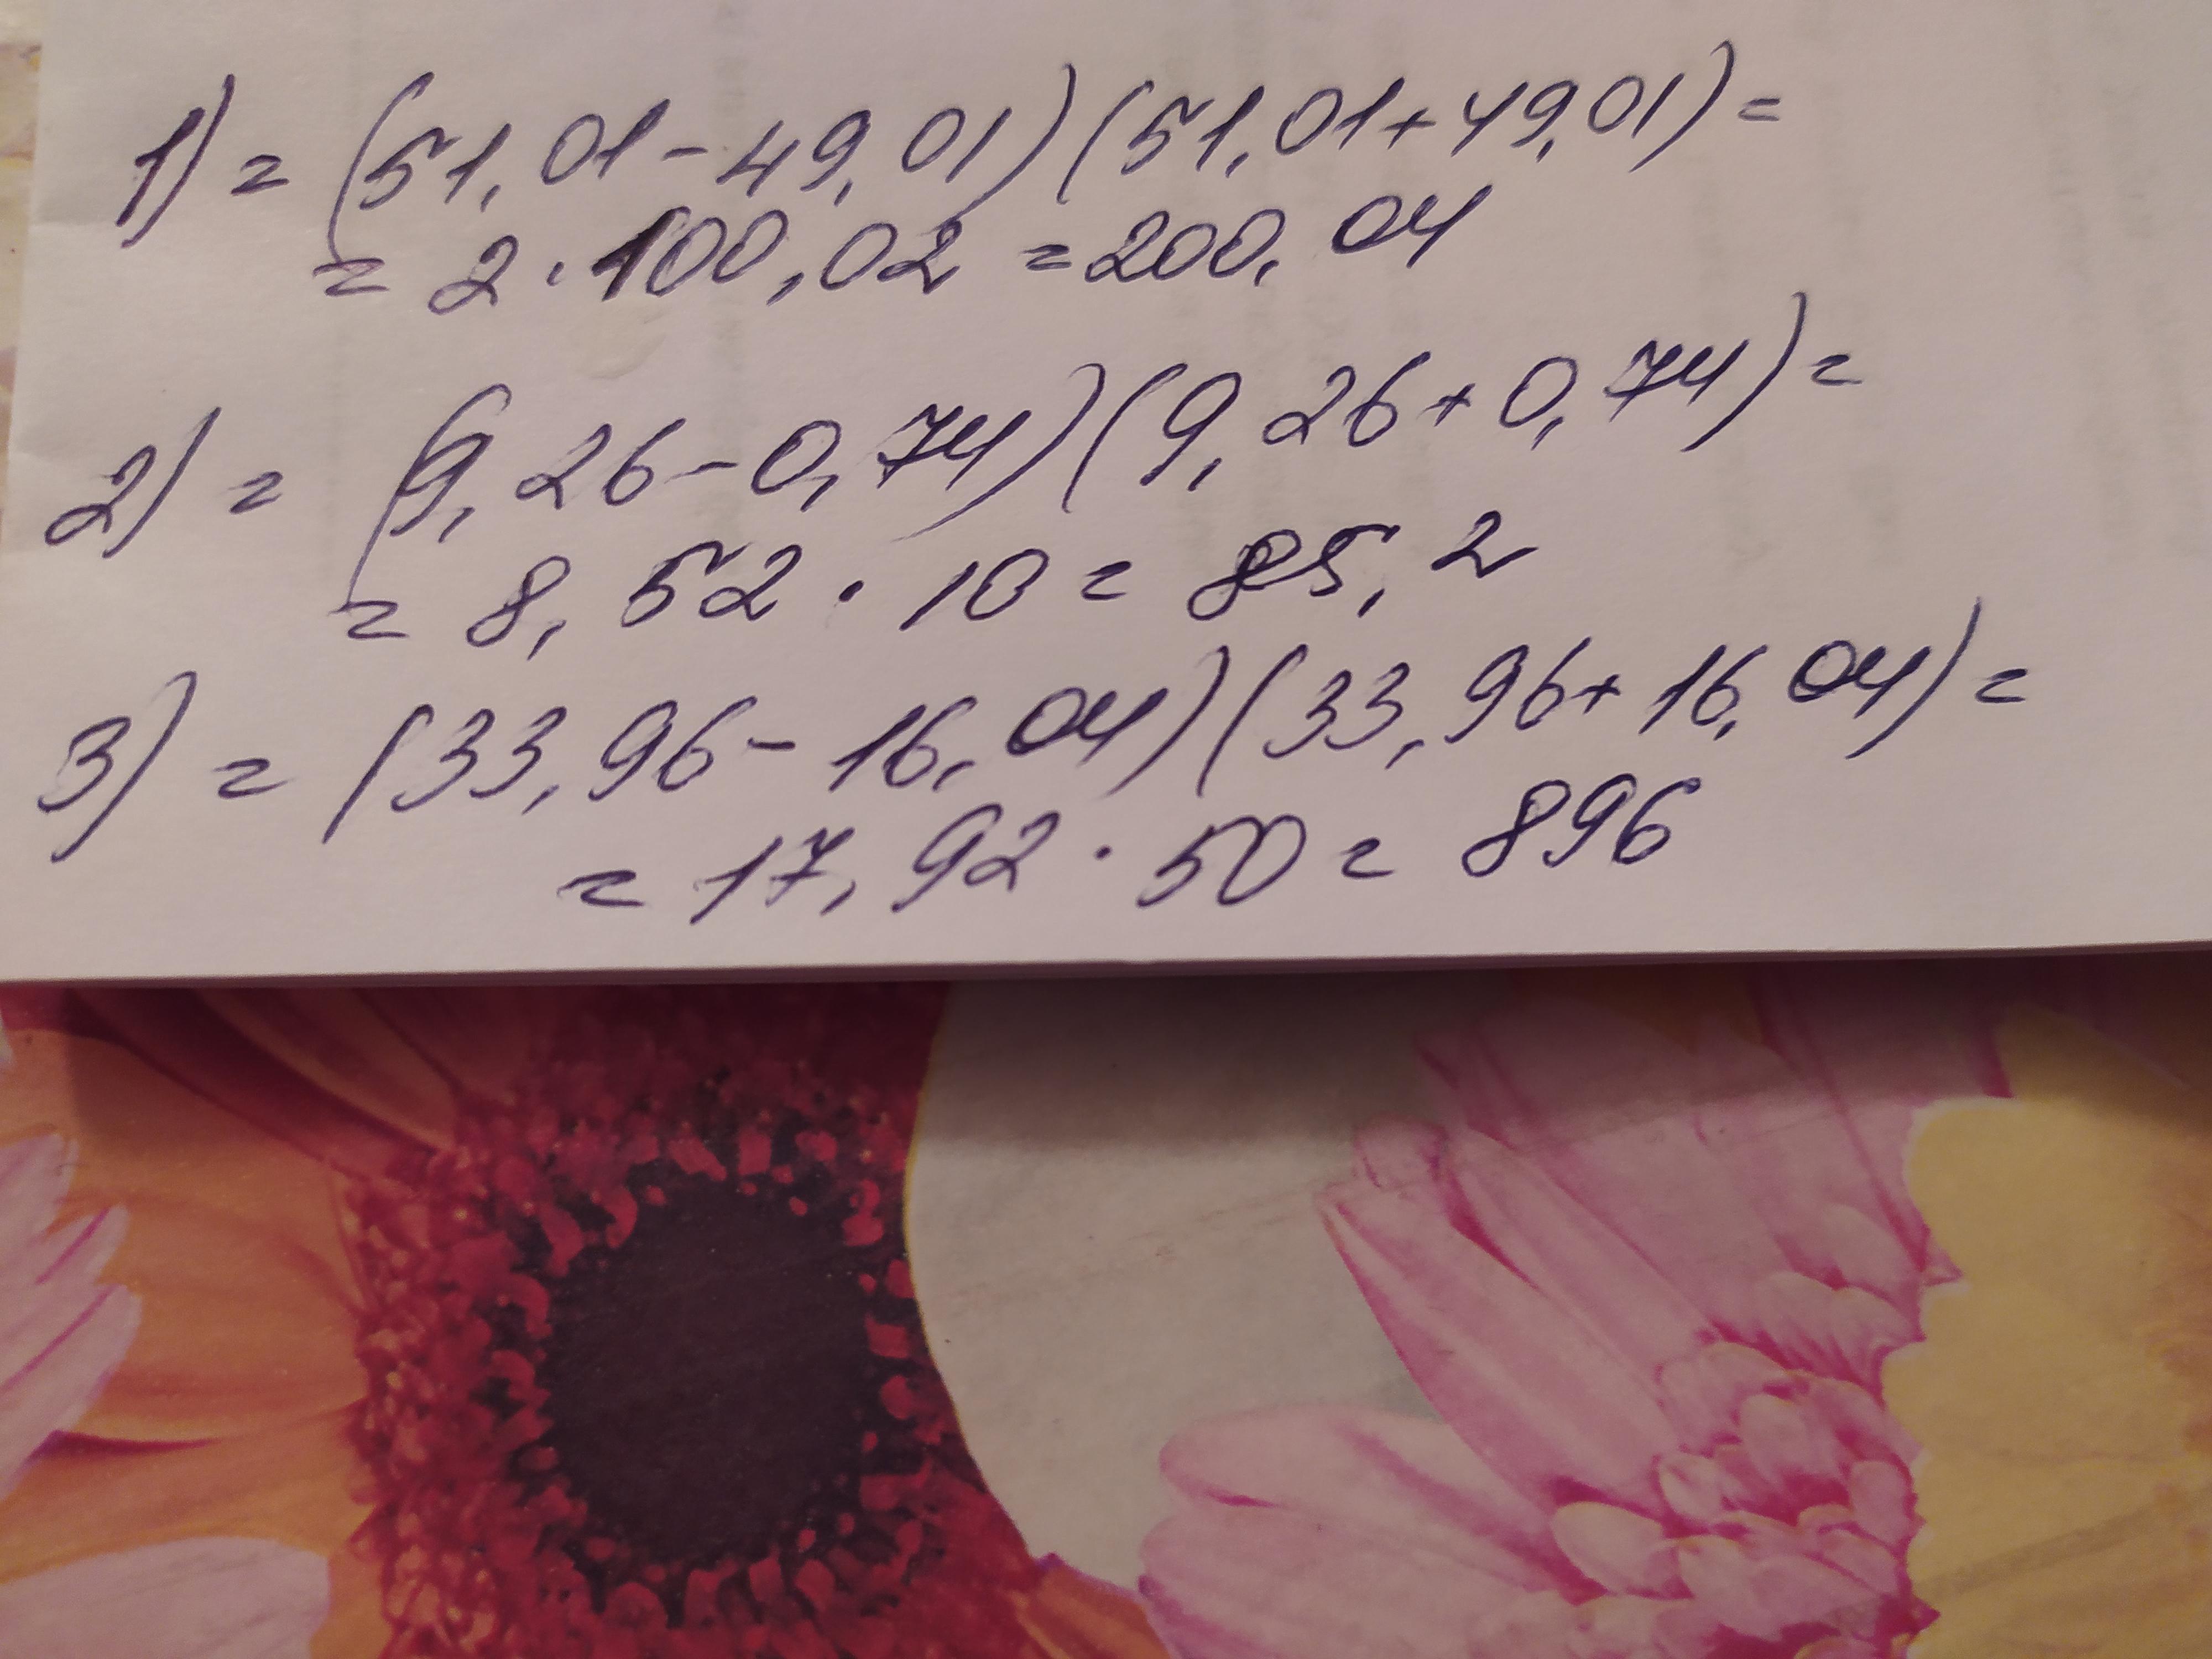 1) = (51,01-49,01)(51,01+49,01)=
= 2·100,02 = 200,04
2) = (9,26-0,74)(9,26+0,74)=
= 8,52·10 = 85,2
3) = (33,96-16,04)(33,96+16,04)=
= 17,92·50 = 896